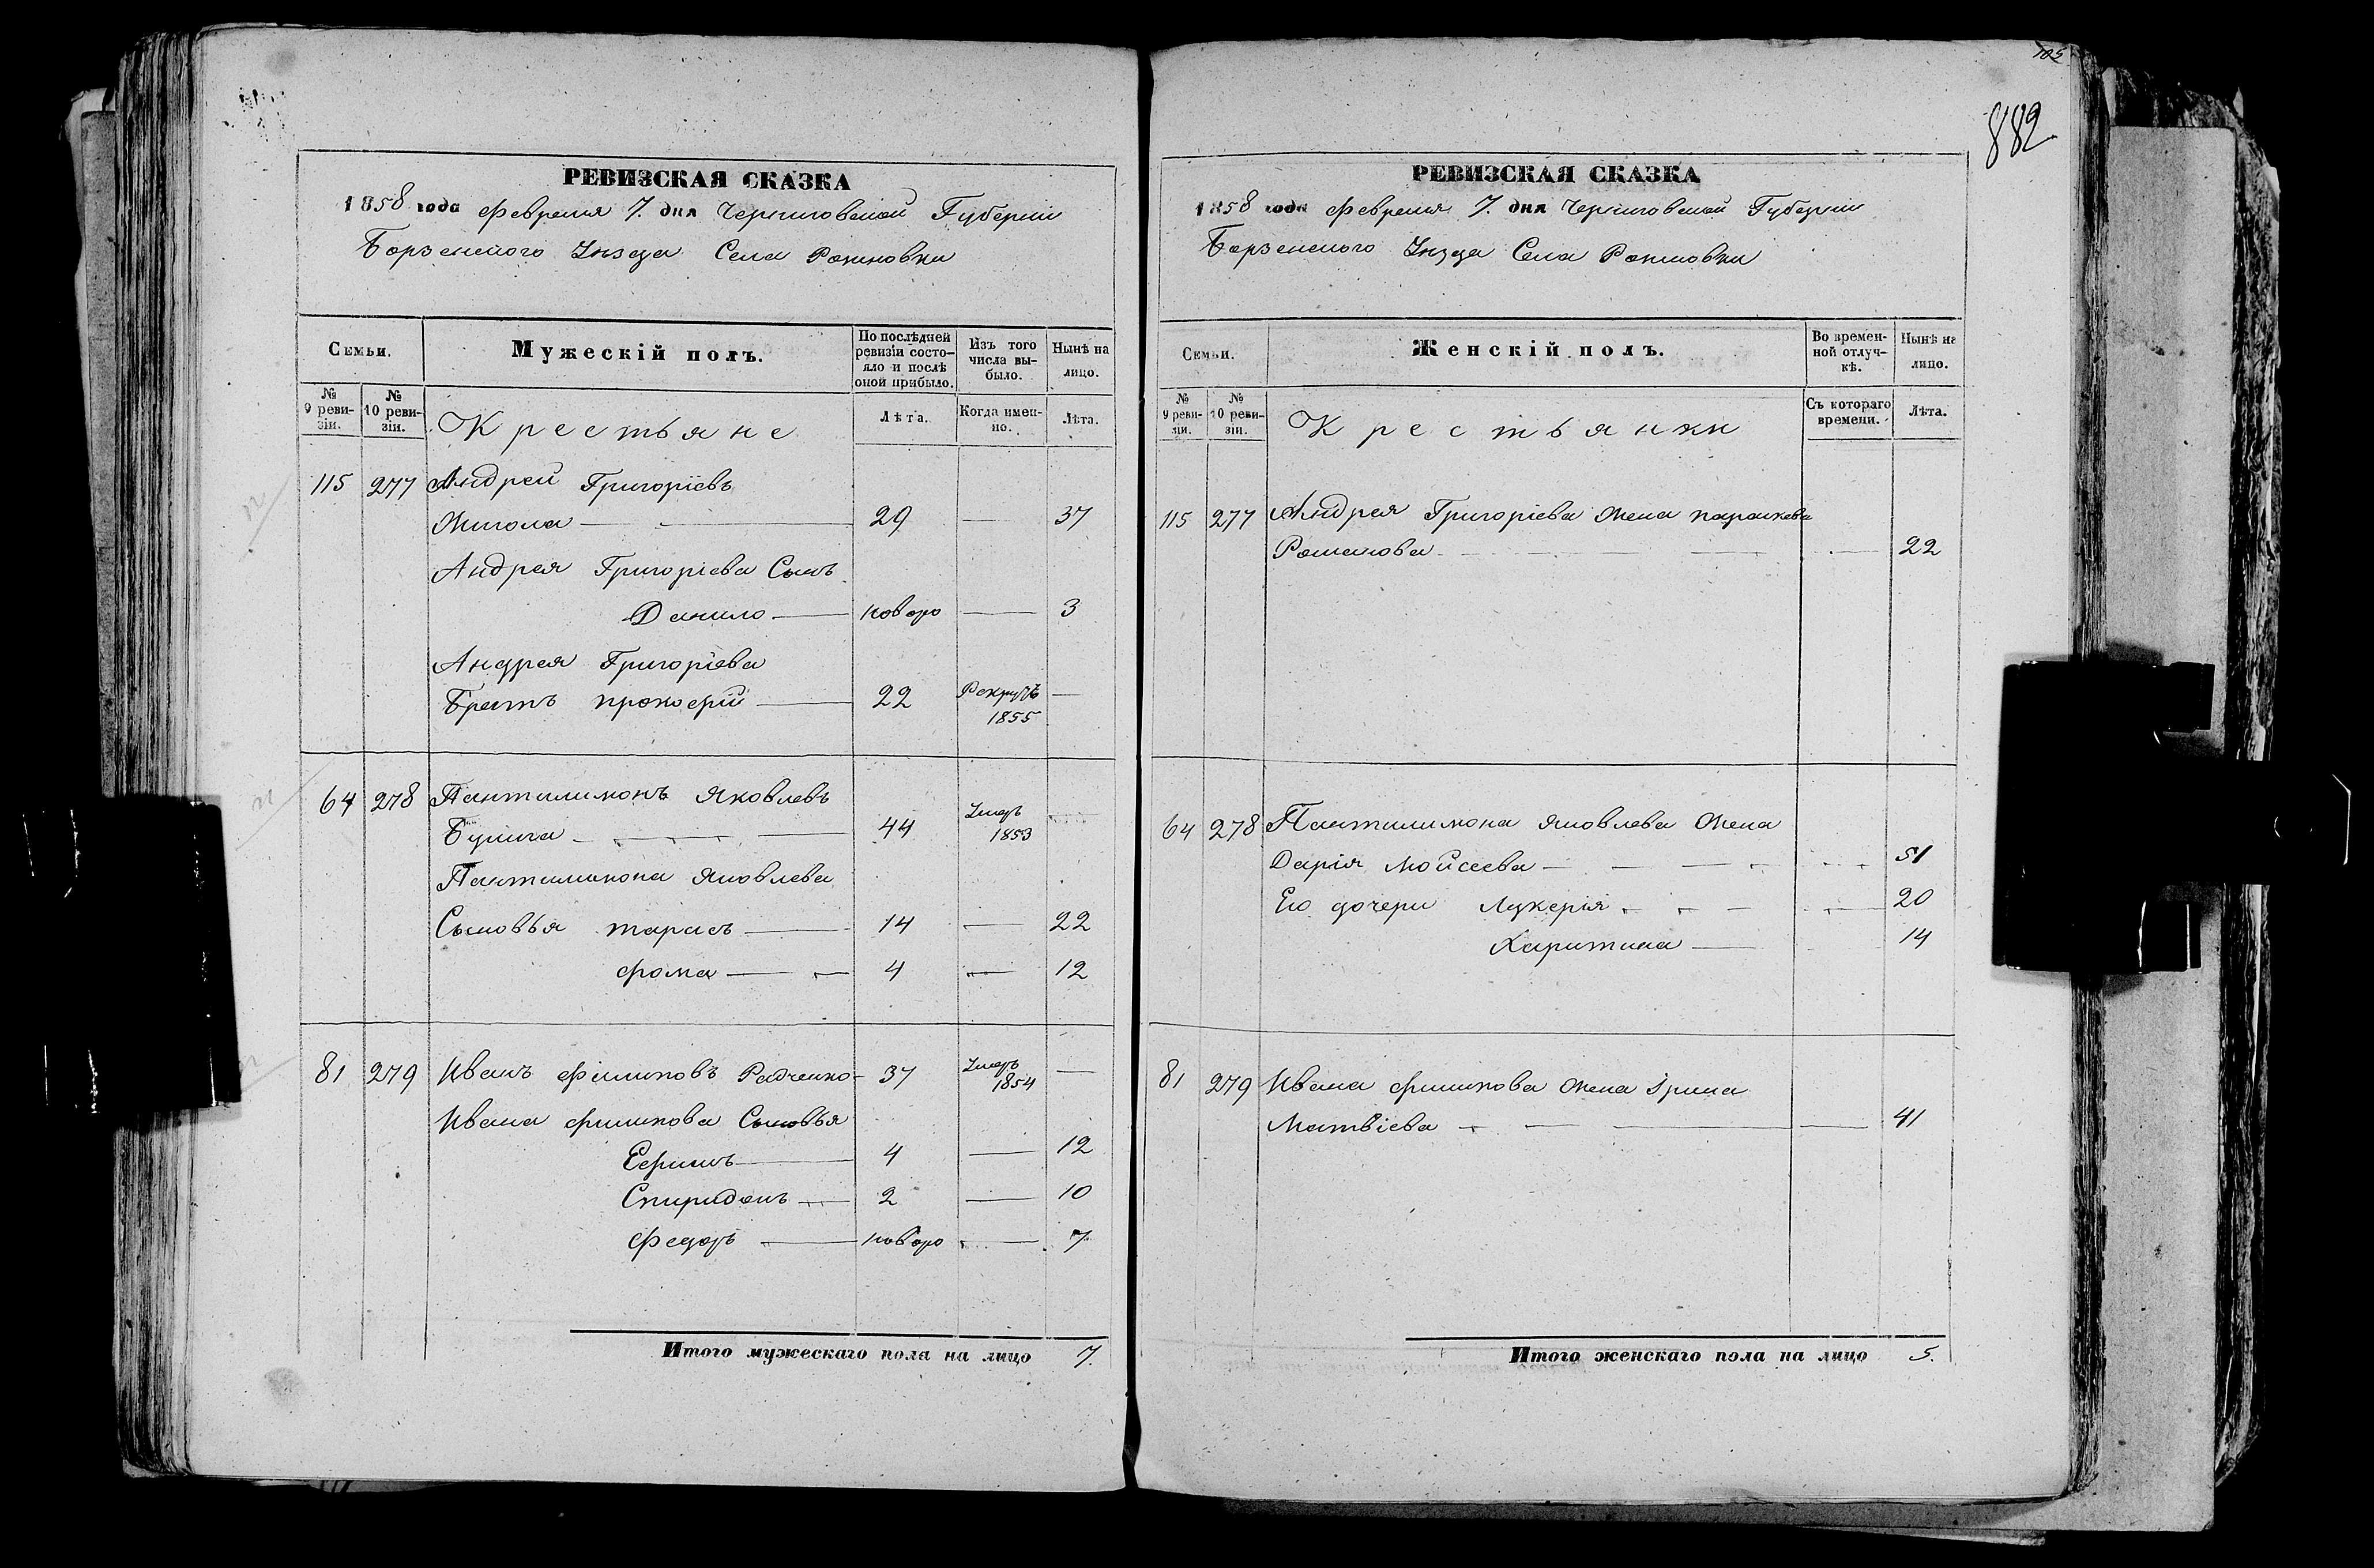 РЕВИЗСКАЯ СКАЗКА
1858 года февраля 7. дня Черниговской Губерніи
Борзенского Уѣзда Села
Семьи.
Мужескій полъ.
По послѣдней ревизіи состо-
яло и послѣ
оной прибыло.
Изъ того
числа вы-
было.
Нынѣ на
лицо.
№
9 реви-
зіи.
№
10 реви-
зіи.
Крестьяне
Лѣта.
Когда имен-
но.
Лѣта.
115 277 Андрей Григоріевъ
Жигола 29 — 37
Андрея Григоріева Сынъ
Данило — новоро — 3
Андрея Григоріева
Братъ прокофій — 22 Рекрутъ —
1855
64 278 Пантилимонъ Яковлевъ
44 Умеръ
1853
Пантилимона Яковлева
Сыновья тарасъ — 14 — 22
фома — 4 — 12
81 279 Иванъ филиповъ Радченко 37 Умеръ —
1854
Ивана филипова Сыновья
Ефимъ — 4 — 12
Спиридонъ — 2 — 10
федоръ — новоро — 7
Итого мужескаго пола на лицо 7.
105
882
РЕВИЗСКАЯ СКАЗКА
1858 года февраля 7. дня Черниговской Губерніи
Борзенского Уѣзда Села
Семьи.
Женскій полъ.
Во времен-
ной отлуч-
кѣ.
Нынѣ на
лицо.
№
9 реви-
зіи.
№
10 реви-
зіи.
Крестьянки
Съ котораго
времени.
Лѣта.
115 277 Андрея Григоріева Жена параскева
Романова — — 22
64 278 Пантилимона Яковлева Жена
Дарія Мойсеева — 51
Его дочери Лукерія — 20
Харитина — 14
81 279 Ивана филипова Жена Ірина
Матвіева — — 41
Итого женскаго пола на лицо 5.